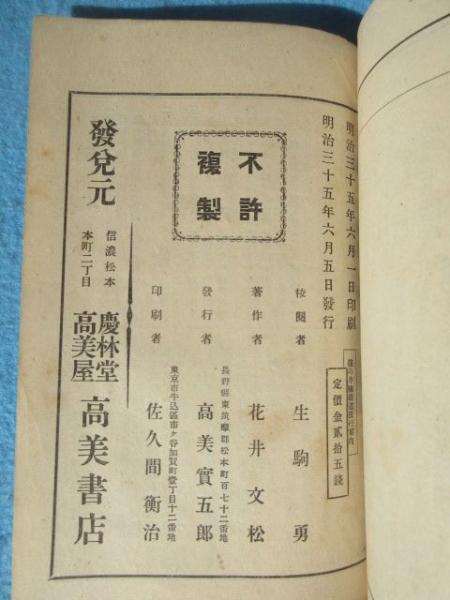 明治三十五年六月一日印刷
明治三十五年六月五日發行
定價金貳拾五錢
校閲者 生駒勇
著作者 花井文松
長野縣東筑摩郡松本町百七十二番地
發行者 高美實五郎
東京市牛込區市ケ谷加賀町壹丁目十二番地
印刷者 佐久間衡治
不許
複製
發兌元
信濃松本
本町二丁目
慶林堂
高美屋
高美書店